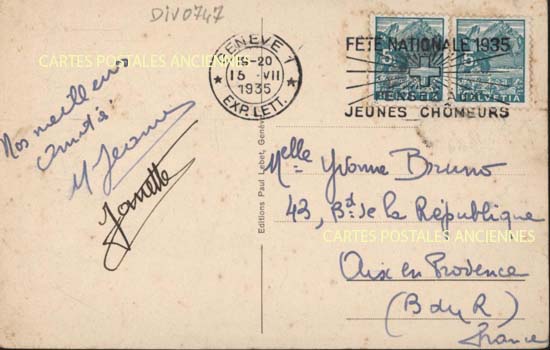 DIV0747
CARTES POSTALES ANCIENNES
GENÈVE 1
18-20
15 VII
1935
EXP. LETT.
FÊTE NATIONALE 1935
JEUNES CHÔMEURS
5
5
HELVETIA
HELVETIA
Nos meilleures
amitiés
Editions Paul Lebet, Genève
Melle Yvonne Bruno
43, Bd de la République
CARTES POSTALES ANCIENNES
Aix en Provence
(B du R)
France